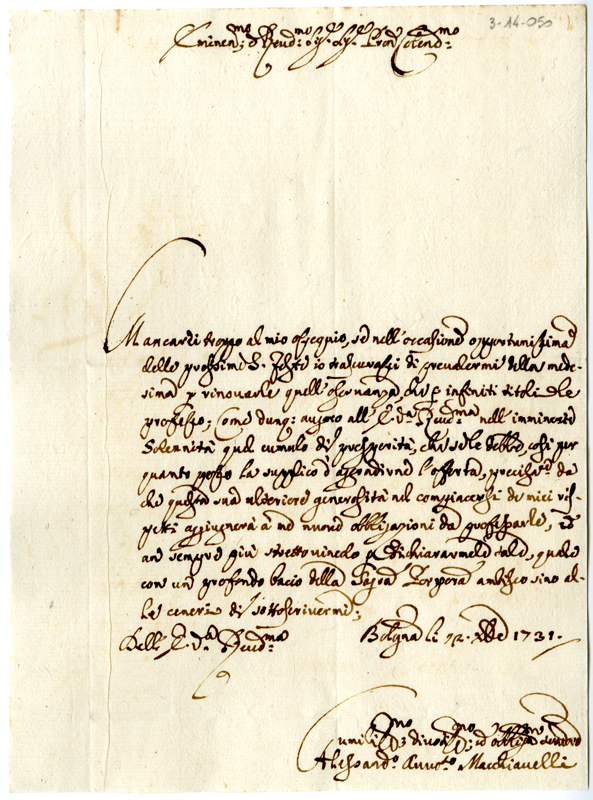 3-14-050
Eminen:mo e Reud:mo Sig.r Sig.r Pron Colend:mo
Mancarei troppo al mio ossequio, se nell'occasione opportunissima
delle prossime S. Feste io trascurassi di prevalermi della mede-
sima p rinovarle quell'osservanza, che p infiniti titoli Le
professo; Come dunq: auguro all'E. V.a Reud:ma nell'imminente
Solennità quel cumulo di prosperità, che se le debbe, così per
quanto posso la supplico d'aggradirne l'offerta,
che questa sua ulteriore generosità nel compiacersi de miei ris-
petti aggiugnerà a me nuove obbligazioni da professarle, ed
an sempre più stretto vincolo p dichiararmele tale, quale
con un profondo bacio della Sagra Porpora ambisco sino al-
le ceneri di sottoscrivermi;
Dell'E. V.a Reud:ma Bologna li 12. Xbre 1731.
Umiliss:mo divotiss:mo ed obblig:mo Servitore
Alessand.o Macchiavelli